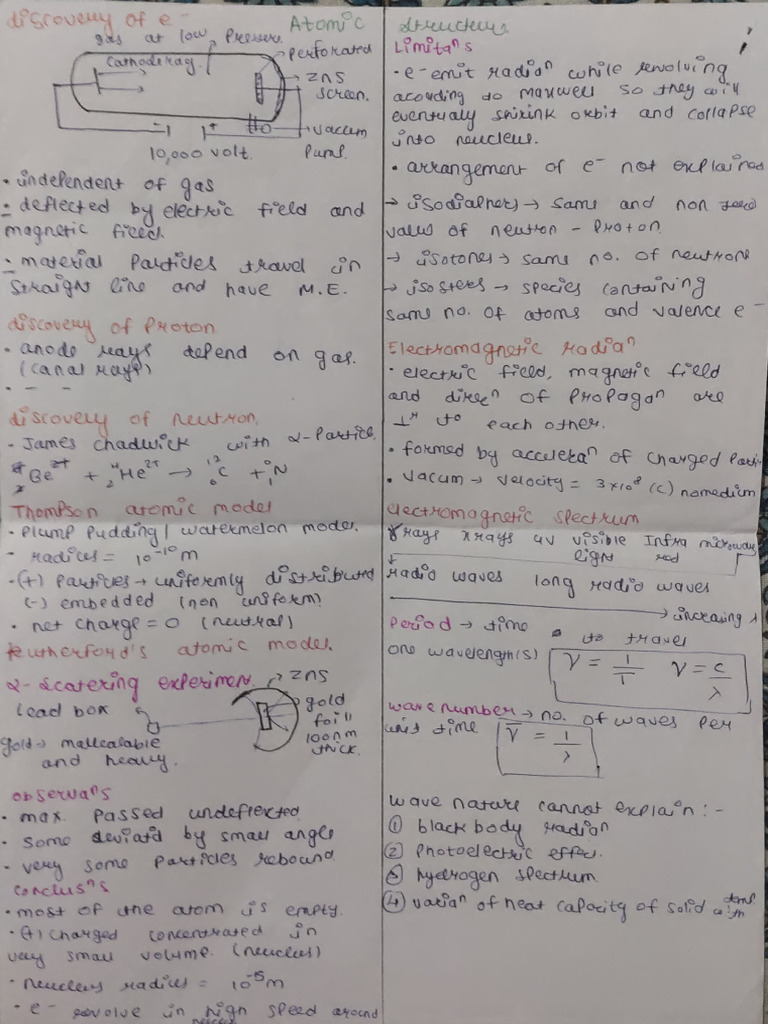 discovery of e-
Atomic
structure
gas at low Pressure
Perforated
Cathode ray
ZnS
screen.
vaccum
Pump.
- +
10,000 volt.
• independent of gas
- deflected by electric field and
magnetic field.
- material Particles travel in
straight line and have M.E.
discovery of Proton
• anode rays depend on gas.
(canal rays)
• - -
discovery of neutron.
• James chadwick with α-Particle
Be2+ + 4 2 He2+ → 12 6 C + 1 N
Thompson atomic model
• Plump Pudding / watermelon model.
• radices = 10-10 m
• (+) Particles → uniformly distributed
(-) embedded (non uniform)
• net charge = 0 (neutral)
Rutherford's atomic model.
α-Scatering experiment
→ ZnS
Lead box
gold
foil
100nm
thick.
gold → mallealable
and heavy.
observans
• max. Passed undeflected
• Some deviatd by small angle
• very some Particles rebound.
Conclusns
• most of the atom is empty.
• (+) charged concentrated in
very small volume. (neucleus)
• neucleus radius = 10-15 m
• e- revolve in high speed around
neucleus
Limitans
• e- emit radian while revolving
acording to maxwell so they will
eventualy shrink orbit and collapse
into neucleus.
• arrangement of e- not explained
→ isodiaphers → same and non zero
value of neutron - Proton.
→ isotones → same no. of neutrons
→ isosters → species containing
same no. of atoms and valence e-
Electromagnetic radian
• electric field, magnetic field
and direcn of Propagan are
⊥r to each other.
• formed by acceleran of charged Parti
• vacum → velocity = 3×10^8 (c) nomedium
electromagnetic spectrum
γ rays x rays uv visible Infra microwave
light red
radio waves long radio waves
→ increasing λ
Period → time to travel
one wavelength(s)
ν = 1/T ν = c/λ
wave number → no. of waves Per
unit time
ν̅ = 1/λ
wave nature cannot explain :-
① black body radian
② Photoelectric effec.
③ hydrogen spectrum
④ varian of heat capacity of solid with temp